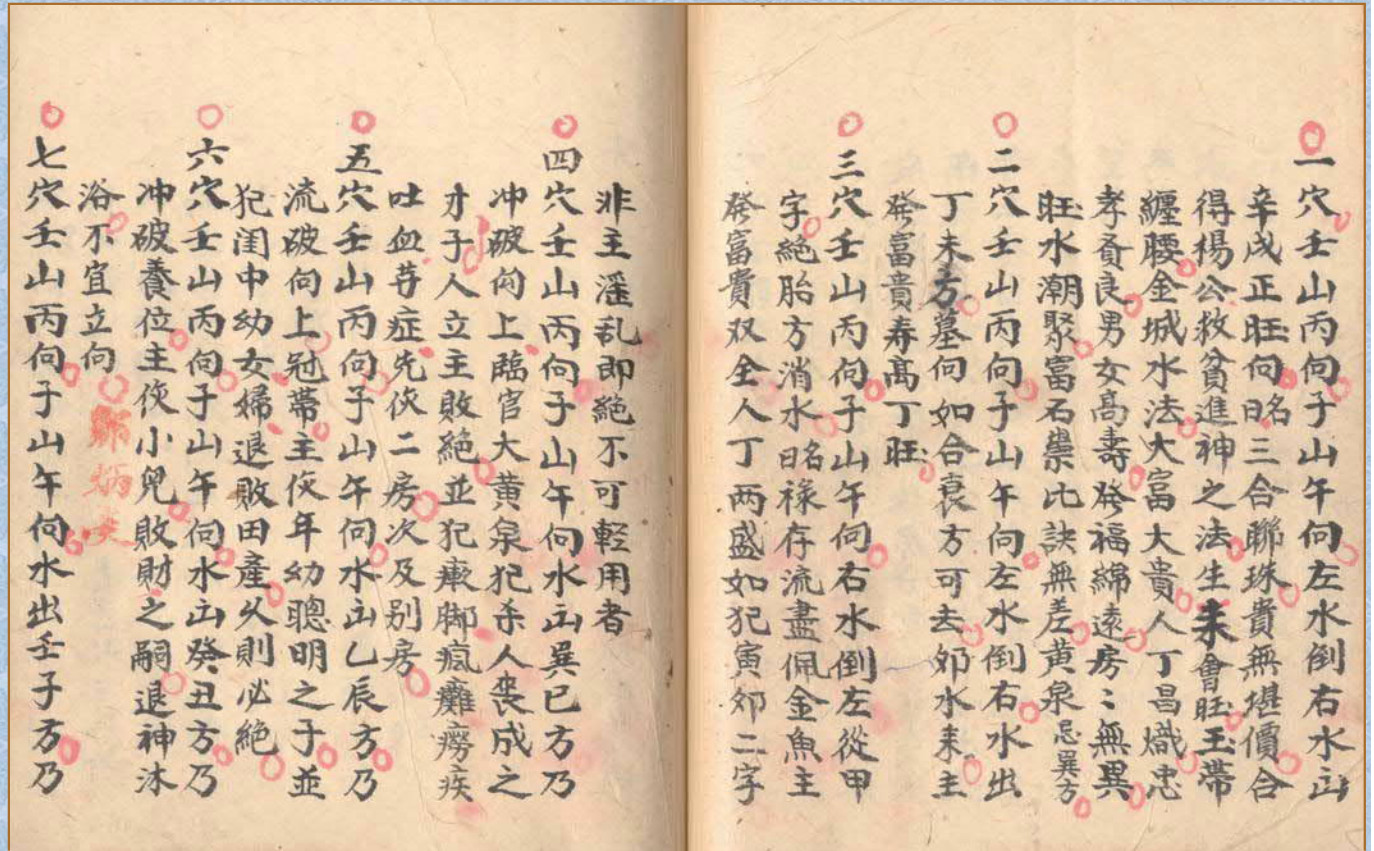 一穴壬山丙向子山午向左水倒右水出
辛戌正旺向名曰三合聯珠貴無堪價合
得楊公救貧進神之法生來會旺玉帶
纏腰金城水法大富大貴人丁昌熾忠
孝賢良男女高壽發福綿遠房〻無異
旺水潮聚富石崇比訣無差黃泉忌巽方
二穴壬山丙向子山午向左水倒右水出
丁未方墓向如合衰方可去卯水来主
發富貴寿高丁旺
三穴壬山丙向子山午向右水倒左從甲
字絕胎方消水名曰祿存流盡佩金魚主
發富貴双全人丁两盛如犯寅卯二字
非主滛乱即絕不可軽用者
四穴壬山丙向子山午向水出巽巳方乃
冲破向上臨官大黃泉犯杀人喪成之
才子人立主敗絕並犯瘷脚瘋癱癆疾
吐血苛症先伤二房次及别房
五穴壬山丙向子山午向水出乙辰方乃
流破向上冠帶主伤年幼聰明之子並
犯闺中幼女婦退敗田產久則必絕
六穴壬山丙向子山午向水出癸丑方乃
冲破養位主伤小兒敗財之嗣退神沐
浴不宜立向
七穴壬山丙向子山午向水出壬子方乃